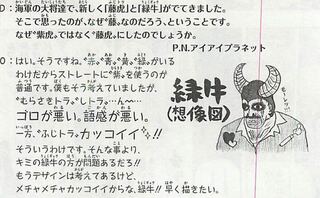 D：海軍の大将達で、新しく『藤虎』と『緑牛』がでてきました。
そこで思ったのが、なぜ“藤”なのだろう、ということです。
なぜ“紫虎”ではなく“藤虎”にしたのでしょうか。
P.N.アイアイプラネット
O：はい。そうですね。“赤”“青”“黄”“緑”がいる
わけだからストレートに“紫”を使うのが
普通です。僕もそう考えていましたが、
“むらさきトラ。”“しトラ。”…ん〜…
ゴロが悪い。語感が悪い。
一方、“ふじトラ。”カッコイイ!!
そういうわけです。そんな事より、
キミの緑牛の方が問題あるだろ!!
もうデザインは考えてあるけど、
メチャメチャカッコイイからな、緑牛!! 早く描きたい。
緑牛
(想像図)